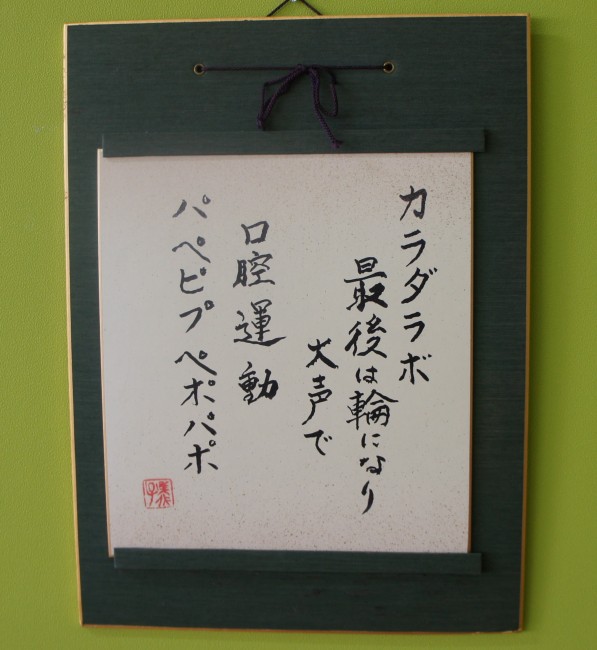 カラダラボ
最後は輪になり
大声で
口腔運動
パペピプペポパポ